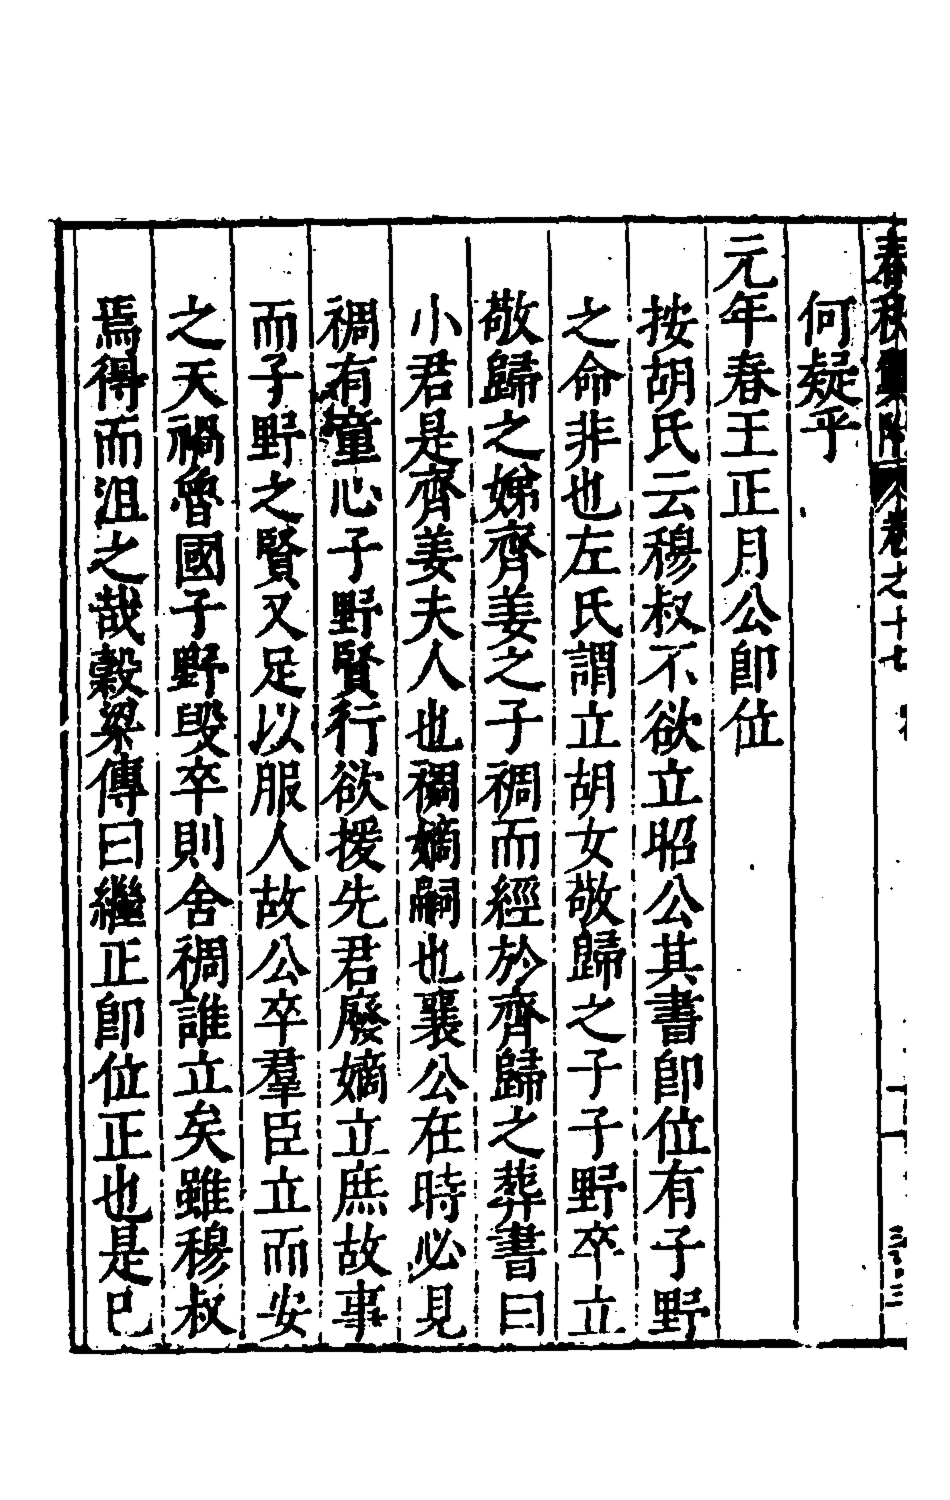 春秋集附 卷之十七
何疑乎
元年春王正月公卽位
按胡氏云穆叔不欲立昭公其書卽位有子野
之命非也左氏謂立胡女敬歸之子子野卒立
敬歸之娣齊姜之子裯而經於齊歸之葬書曰
小君是齊姜夫人也裯嫡嗣也襄公在時必見
裯有童心子野賢行欲援先君廢嫡立庶故事
而子野之賢又足以服人故公卒羣臣立而安
之天禍魯國子野毁卒則舍裯誰立矣雖穆叔
焉得而沮之哉穀梁傳曰繼正卽位正也是已